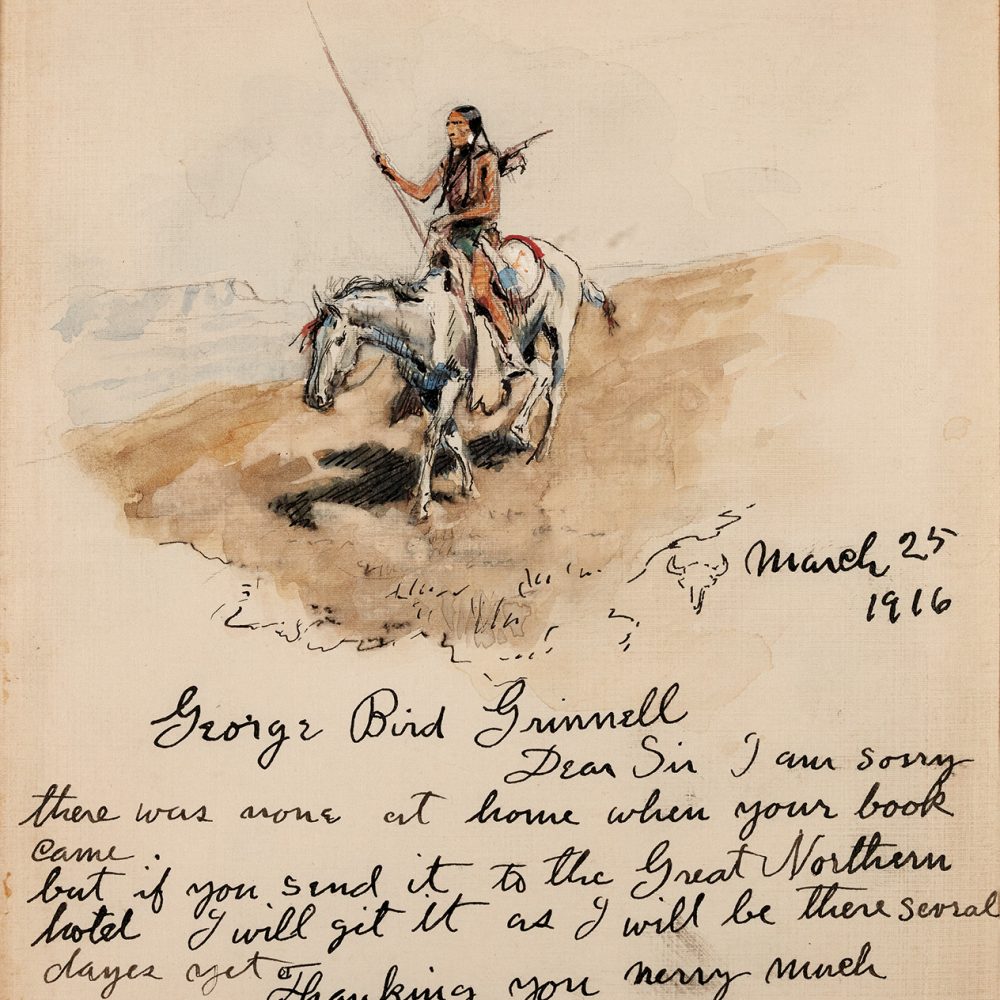 March 25
1916
George Bird Grinnell
Dear Sir I am sorry
there was none at home when your book
came.
but if you send it to the Great Northern
hotel I will get it as I will be there sevral
dayes yet
Thanking you verry much